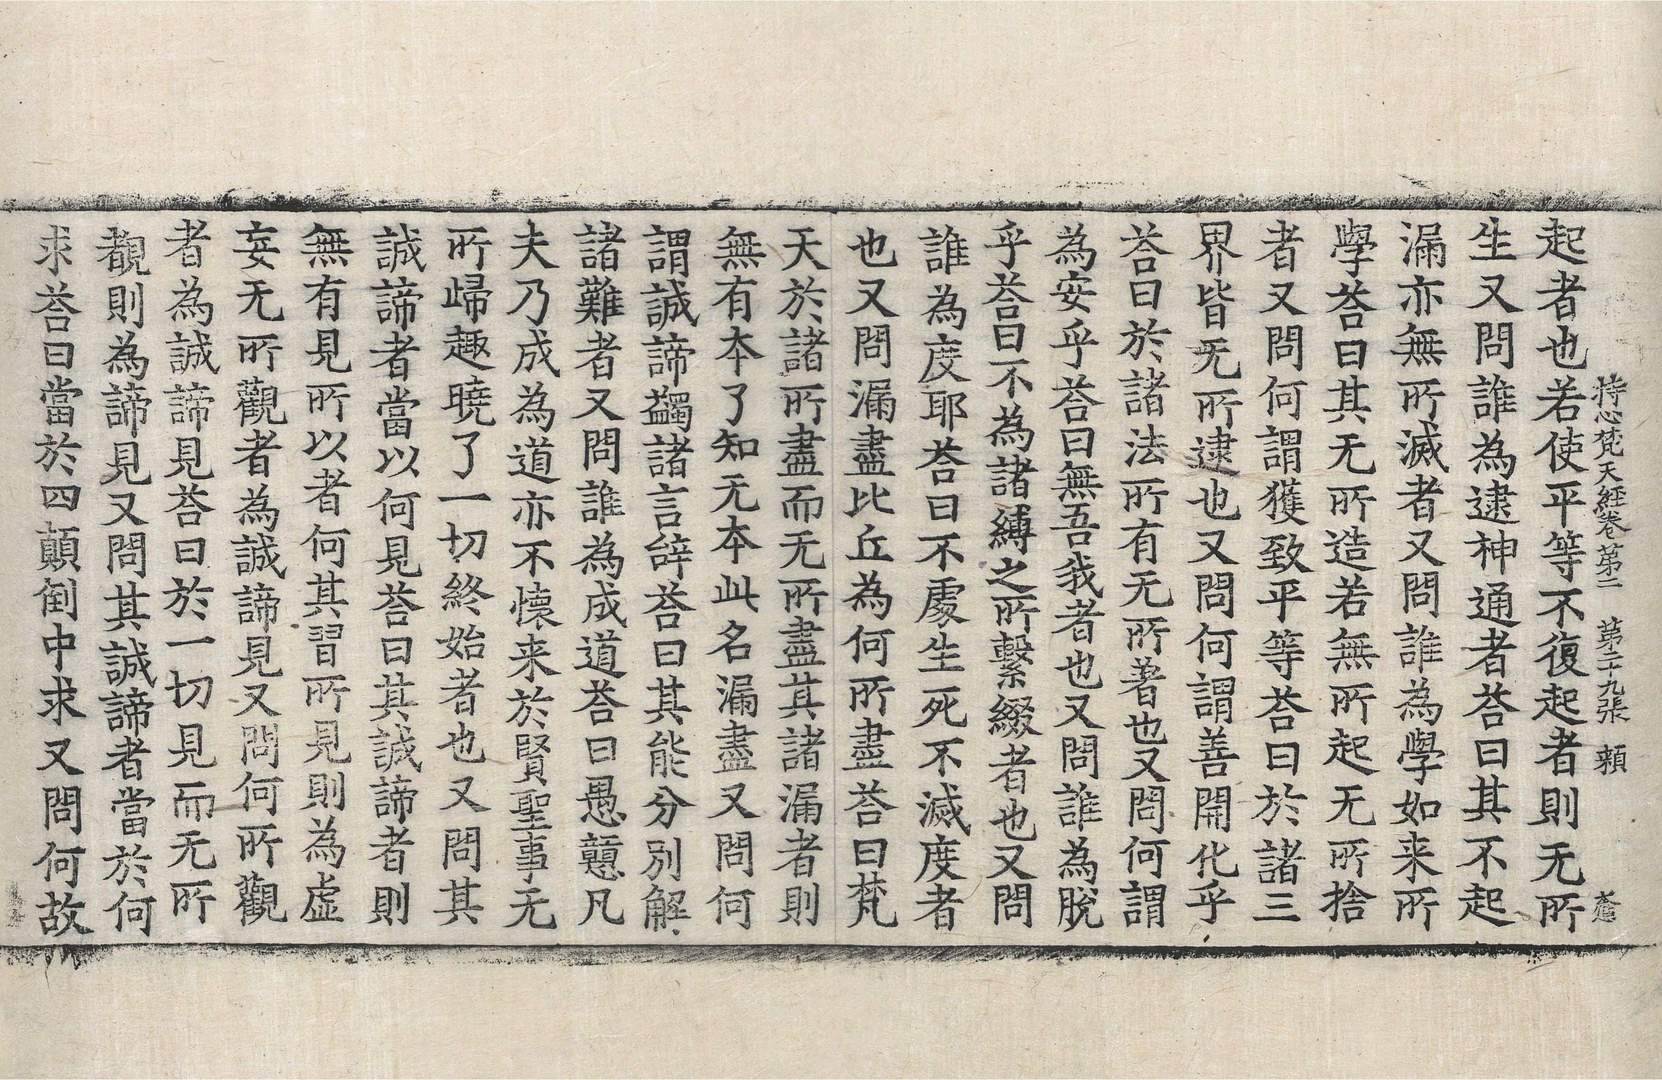 持心梵天經卷第二　第二十九張　賴
起者也若使平等不復起者則无所
生又問誰為逮神通者荅曰其不起
漏亦無所滅者又問誰為學如来所
學荅曰其无所造若無所起无所捨
者又問何謂獲致平等荅曰於諸三
界皆无所逮也又問何謂善開化乎
荅曰於諸法所有无所著也又問何謂
為安乎荅曰無吾我者也又問誰為脫
乎荅曰不為諸縛之所繫綴者也又問
誰為度耶荅曰不處生死不滅度者
也又問漏盡比丘為何所盡荅曰梵
天於諸所盡而无所盡其諸漏者則
無有本了知无本此名漏盡又問何
謂誠諦蠲諸言辞荅曰其能分別解
諸難者又問誰為成道荅曰愚戇凡
夫乃成為道亦不懷来於賢聖事无
所歸趣曉了一切終始者也又問其
誠諦者當以何見荅曰其誠諦者則
無有見所以者何其習所見則為虛
妄无所觀者為誠諦見又問何所觀
者為誠諦見荅曰於一切見而无所
覩則為諦見又問其誠諦者當於何
求荅曰當於四顛倒中求又問何故